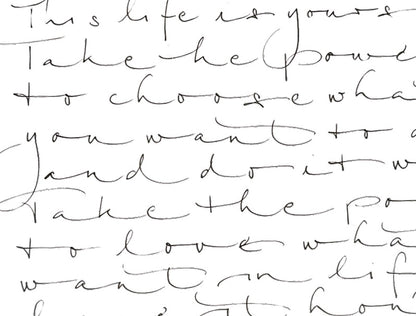 This life is yours
Take the powe
to choose wha
you want to d
and do it w
Take the po
to love wha
want in lif
love it hon